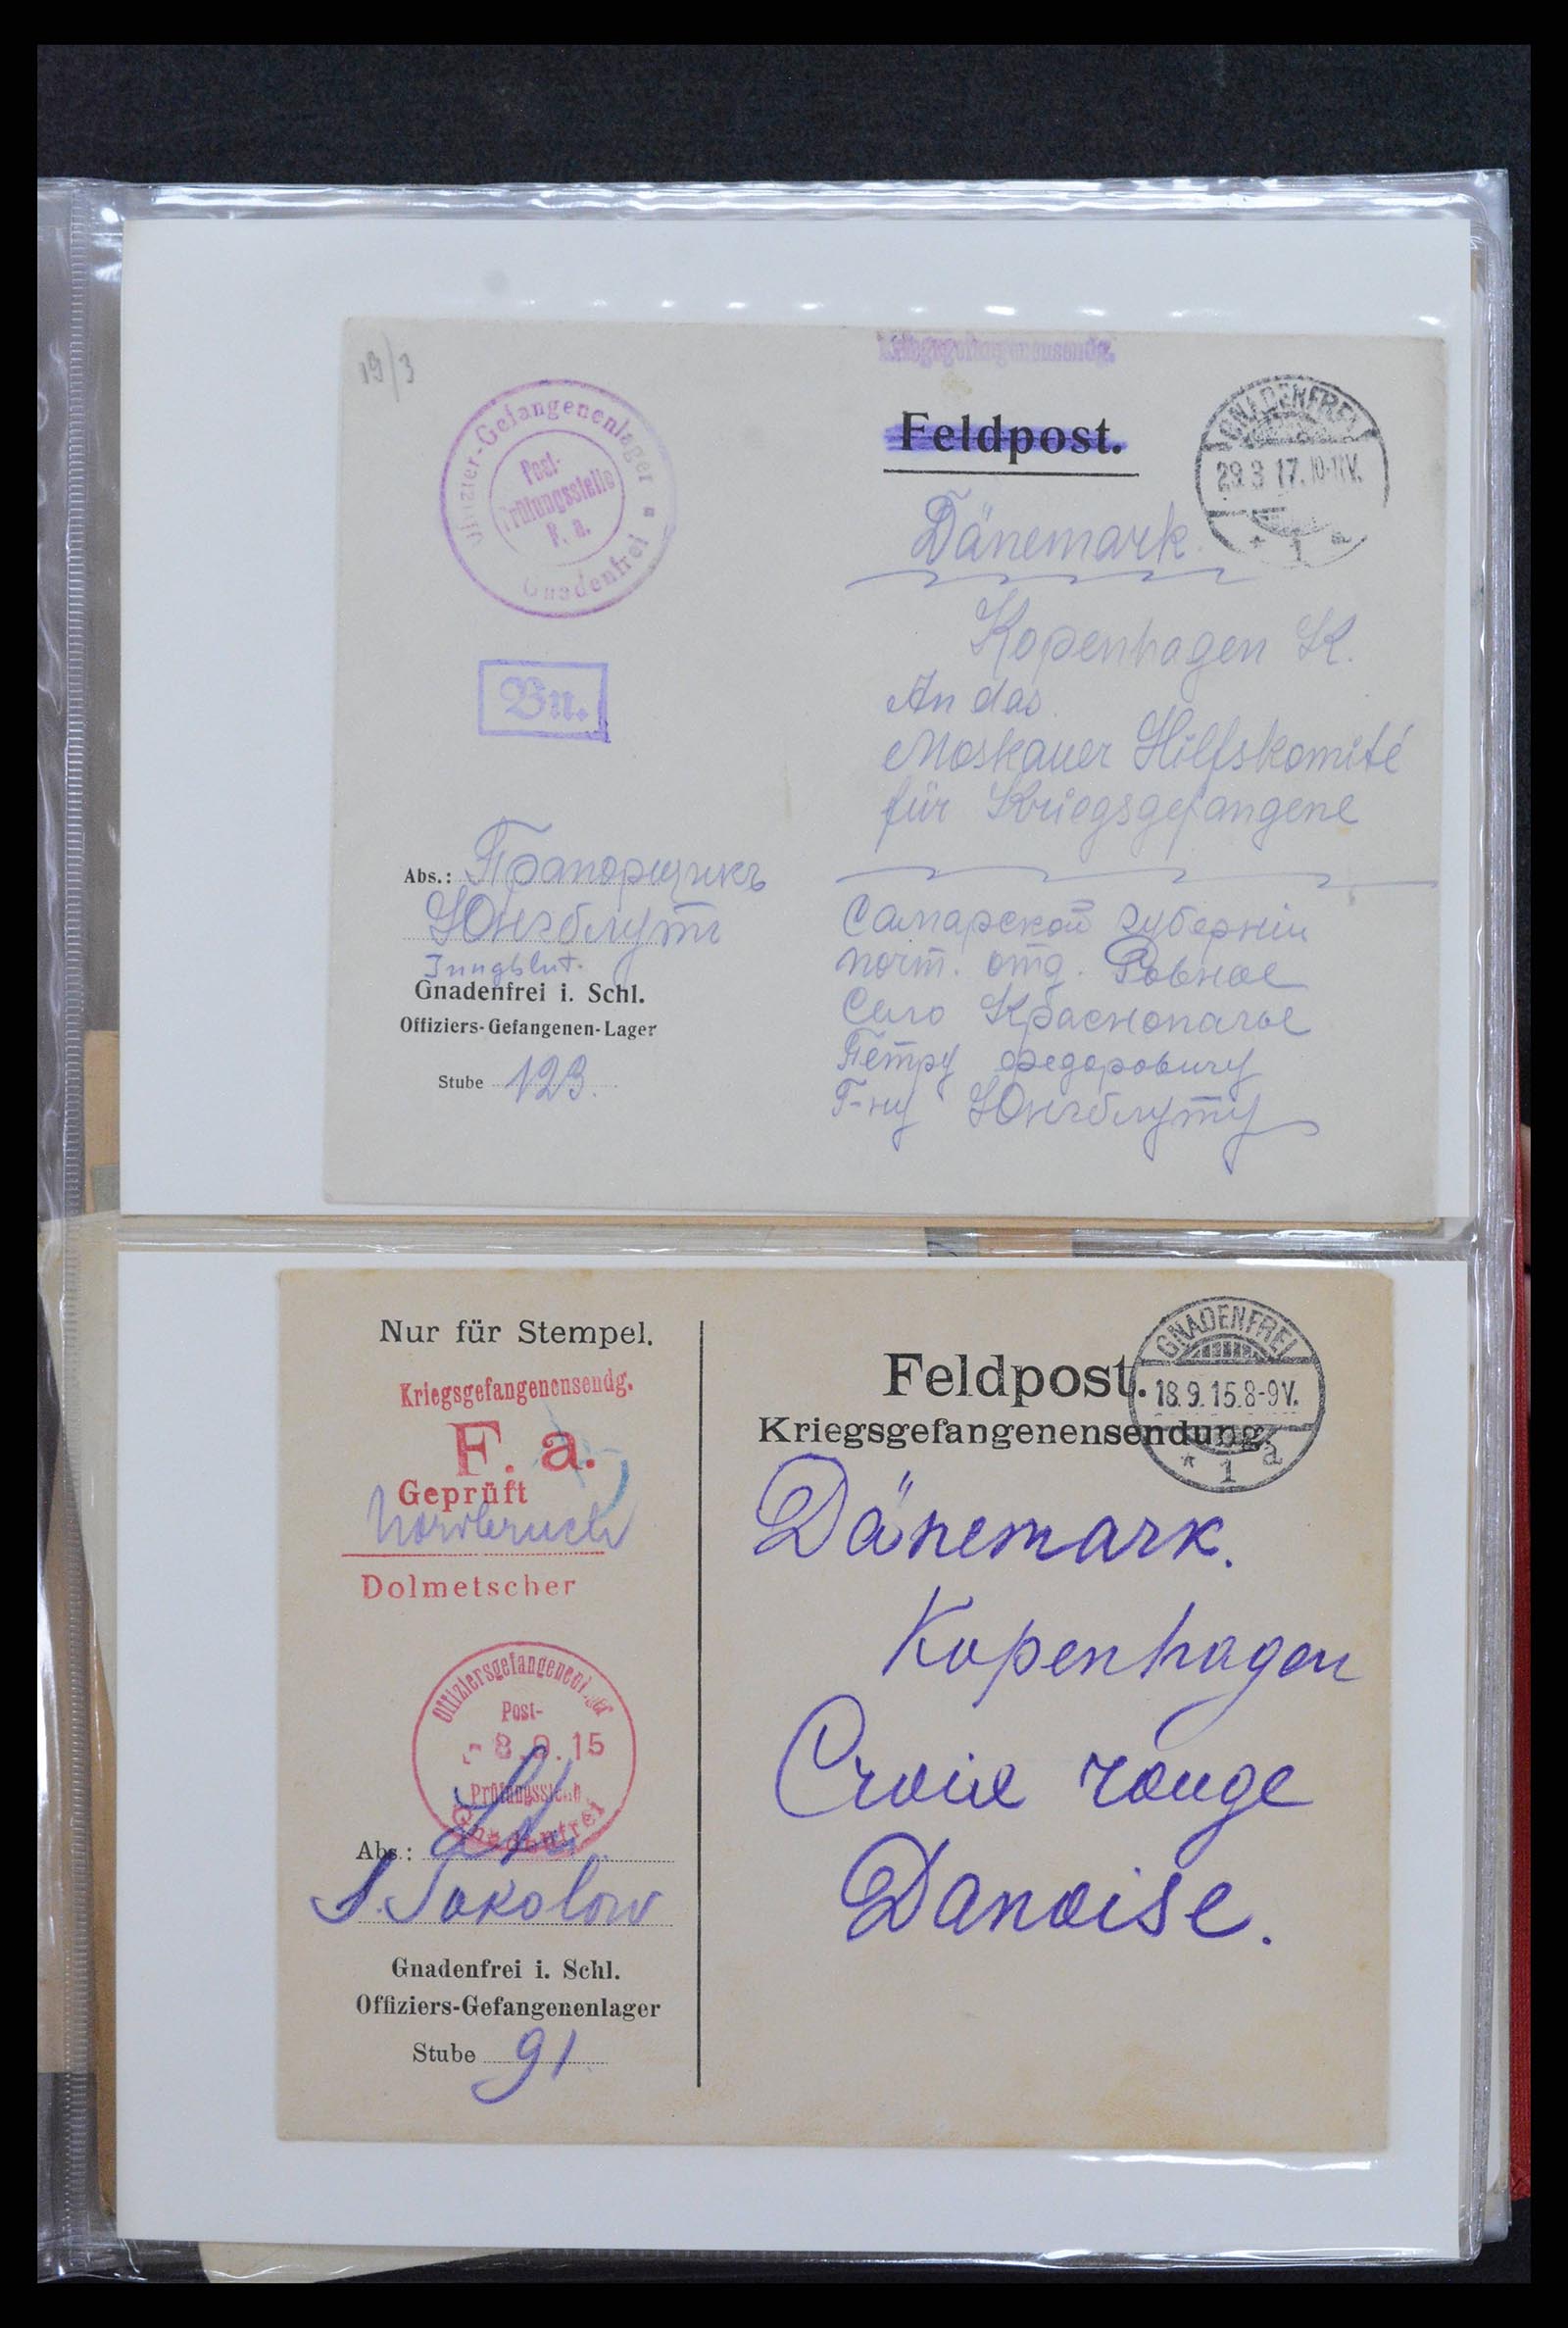 19/3
Kriegsgefangenensendg.
Offizier-Gefangenenlager
Post-
Prüfungsstelle
F. a.
Gnadenfrei
Feldpost.
GNADENFREI
29.3 17.10-11V.
* 1 a
Dänemark.
Kopenhagen K.
An das
Moskauer Hilfskomité
für Kriegsgefangene
Bn.
Abs.: Прапорщикъ
Юнгблутъ
Jungblut.
Gnadenfrei i. Schl.
Offiziers-Gefangenen-Lager
Stube 123.
Самарской губерніи
почт. отд. Ровное
Село Краснополье
Петру Федоровичу
Г-ну Юнгблуту
Nur für Stempel.
Kriegsgefangenensendg.
F. a.
Geprüft
Dolmetscher
Offiziersgefangenenlager
Post-
8.9.15
Prüfungsstelle
Gnadenfrei
Abs.:
S. Sokolow
Gnadenfrei i. Schl.
Offiziers-Gefangenenlager
Stube 91
Feldpost.
Kriegsgefangenensendung.
GNADENFREI
18.9.15.8-9V.
* 1 a
Dänemark.
Kopenhagen
Croix rouge
Danoise.